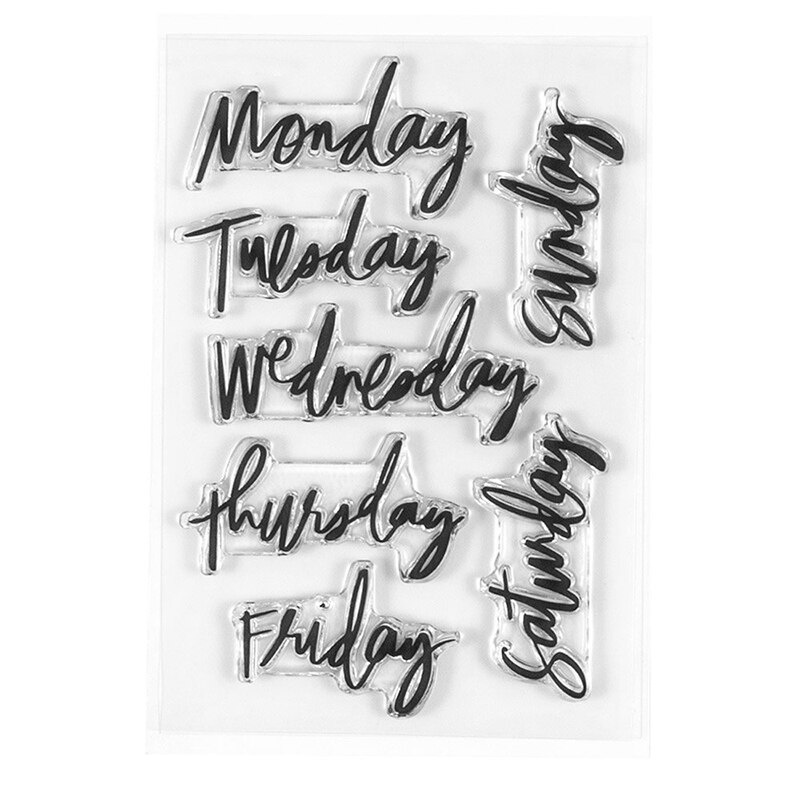 Monday
Tuesday
Wednesday
thursday
Friday
Sunday
Saturday